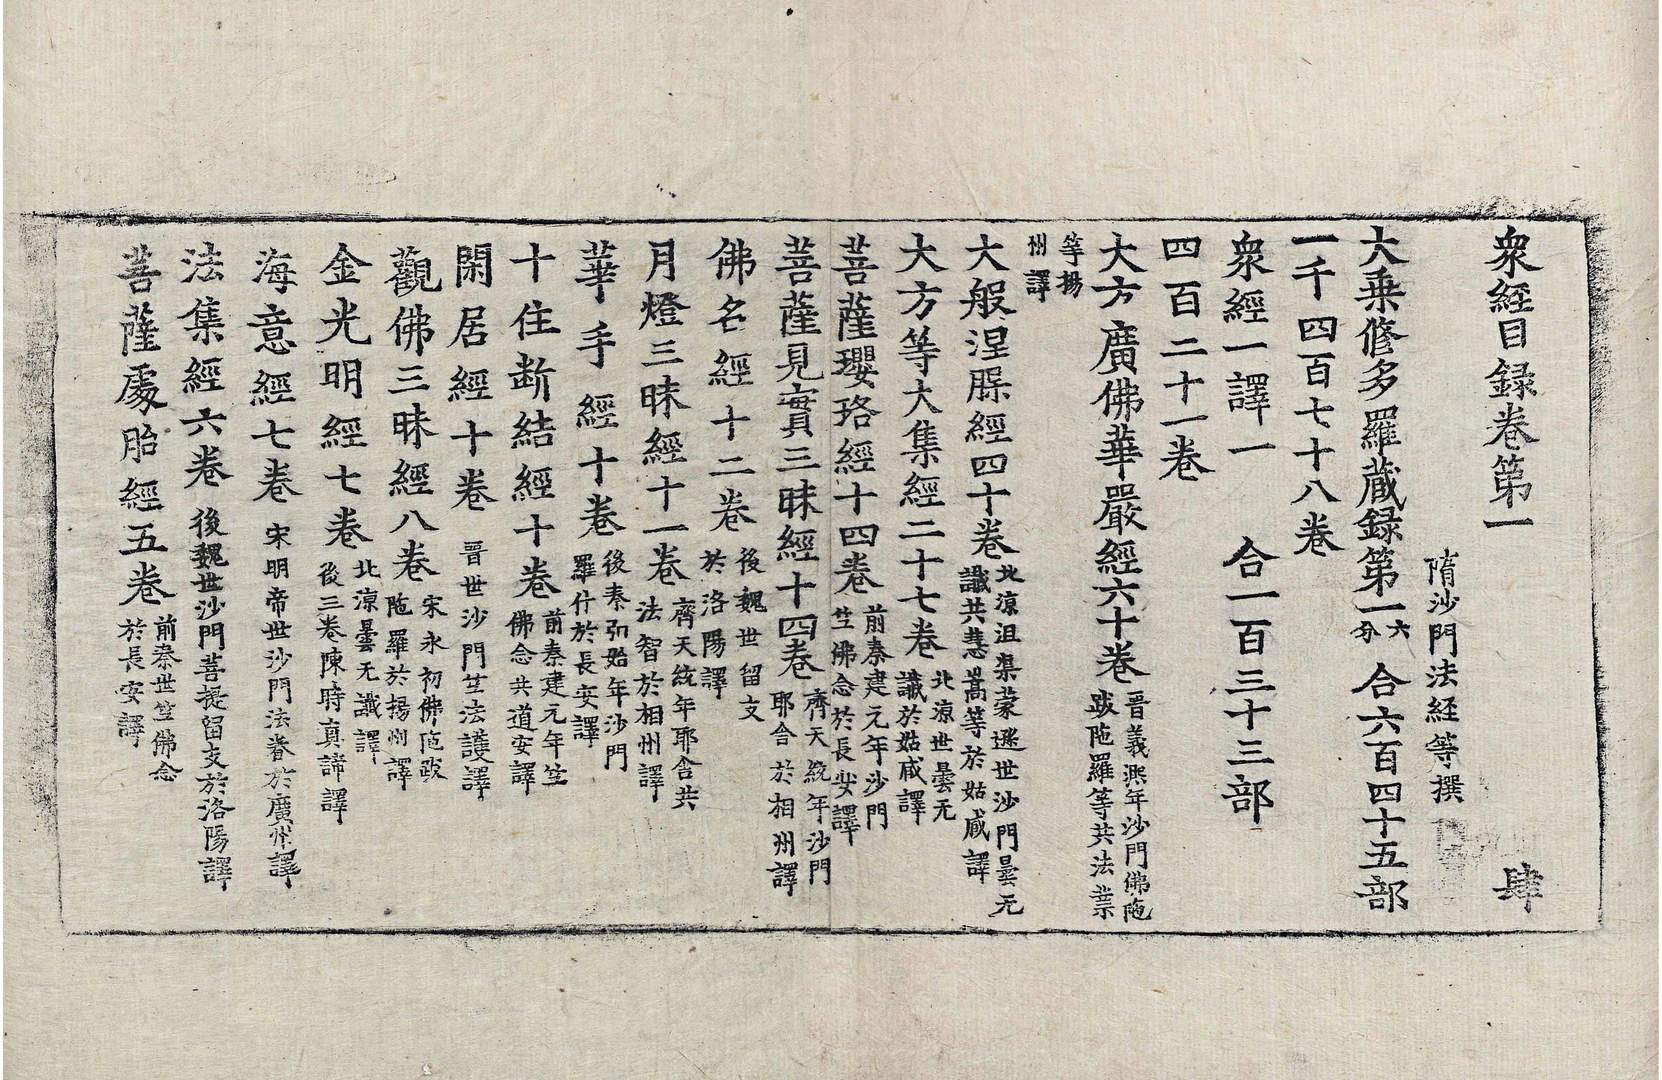 衆經目録卷第一 肆
隋沙門法經等撰
大乗修多羅蔵録第一六分 合六百四十五部
一千四百七十八卷
衆經一譯一 合一百三十三部
四百二十一卷
大方廣佛華嚴經六十卷 晋義熈年沙門佛陁跋陁羅等共法業
等揚州譯
大般涅槃經四十卷 北凉沮渠蒙遜世沙門曇无讖共慧嵩等於姑臧譯
大方等大集經二十七卷 北凉世曇无讖於姑臧譯
菩薩瓔珞經十四卷 前秦建元年沙門竺佛念於長安譯
菩薩見實三昧經十四卷 齊天統年沙門耶舍於相州譯
佛名經十二卷 後魏世留支於洛陽譯
月燈三昧經十一卷 齊天統年耶舍共法智於相州譯
華手經十卷 後秦弘始年沙門羅什於長安譯
十住断結經十卷 前秦建元年竺佛念共道安譯
閑居經十卷 晋世沙門竺法護譯
觀佛三昧經八卷 宋永初佛陁跋陁羅於揚州譯
金光明經七卷 北凉曇无讖譯後三卷陳時真諦譯
海意經七卷 宋明帝世沙門法眷於廣州譯
法集經六卷 後魏世沙門菩提留支於洛陽譯
菩薩處胎經五卷 前秦世竺佛念於長安譯